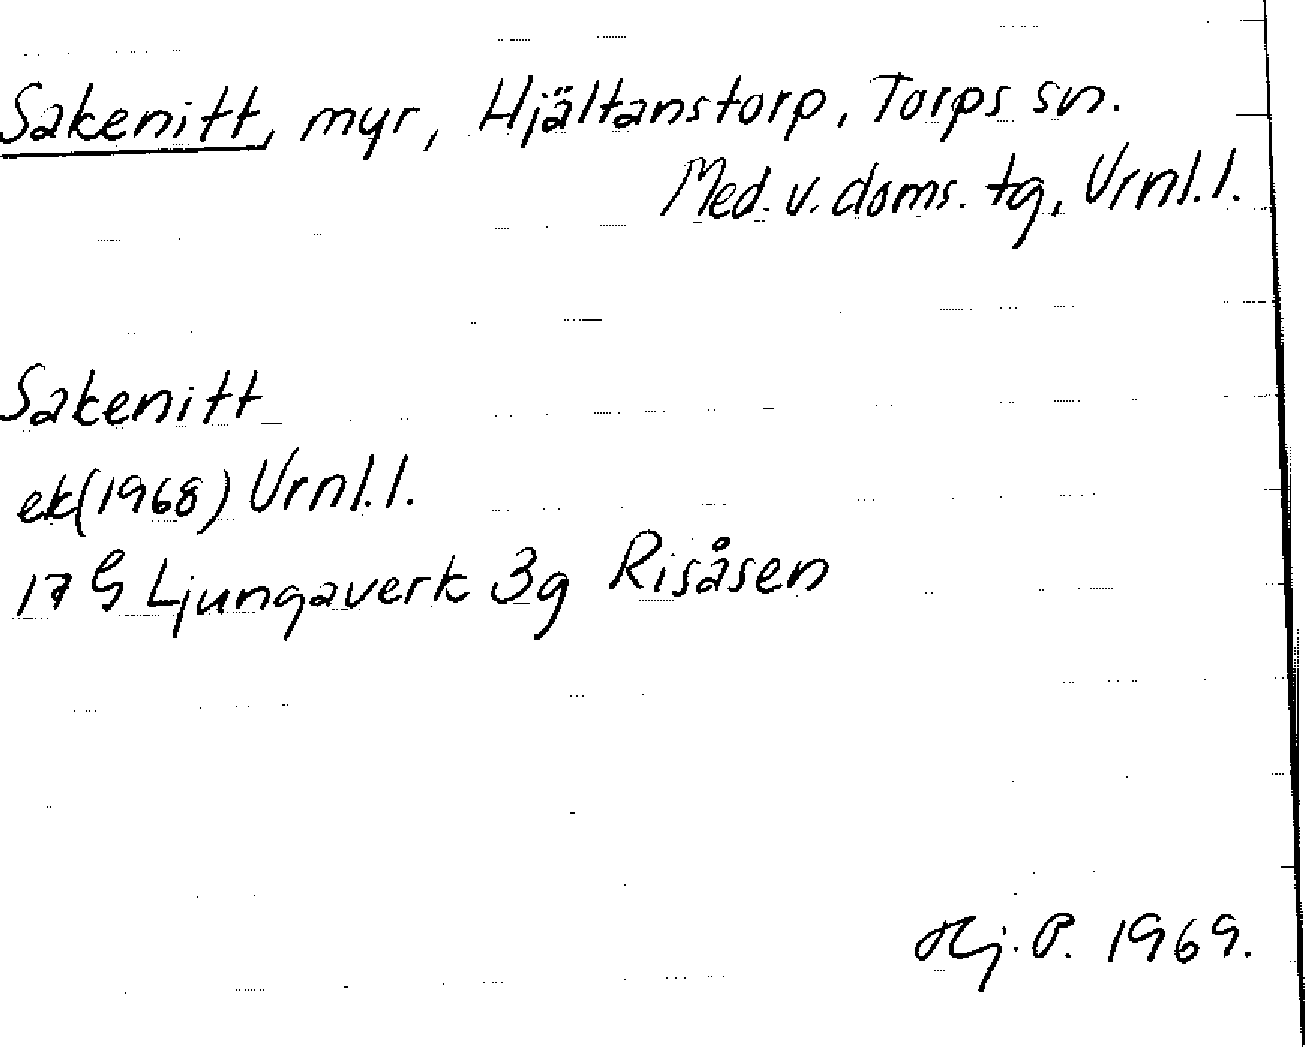 Sakenitt, myr, Hjältanstorp, Torps sn.
Med. v. doms. tg, Vrnl.l.
Sakenitt
ek(1968) Vrnl.l.
17 G Ljungaverk 3g Risåsen
Hj. P. 1969.